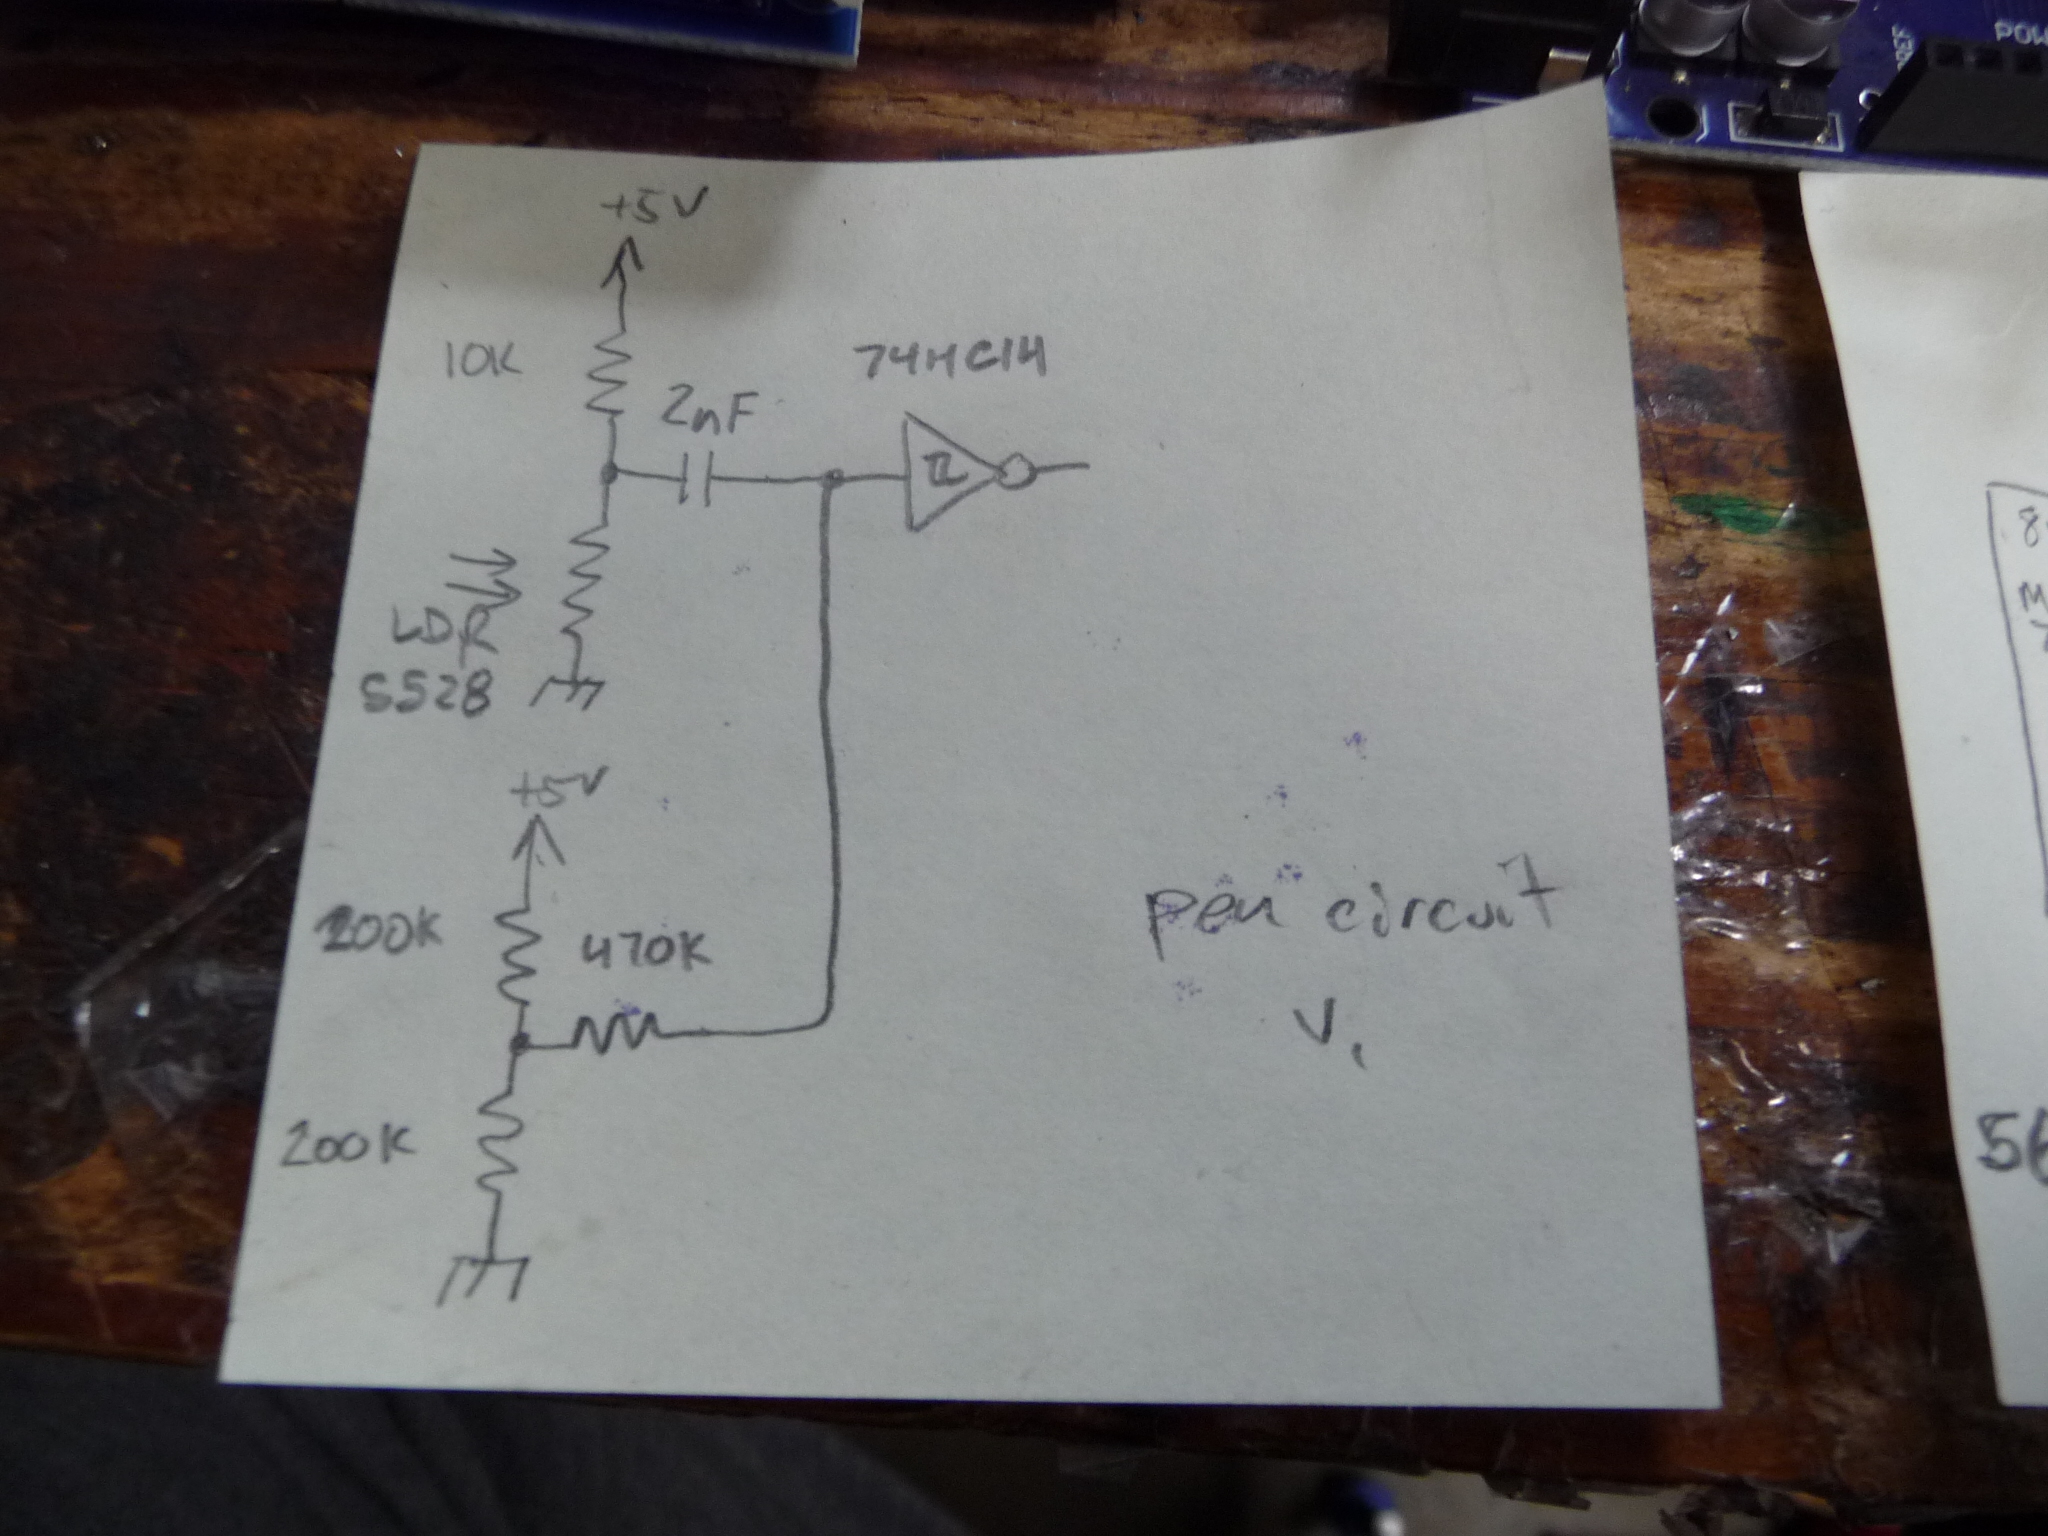 +5V
10K
74HC14
2nF
LDR
5528
+5V
200K
470K
200K
pen circuit
V1
POW
8
M
56